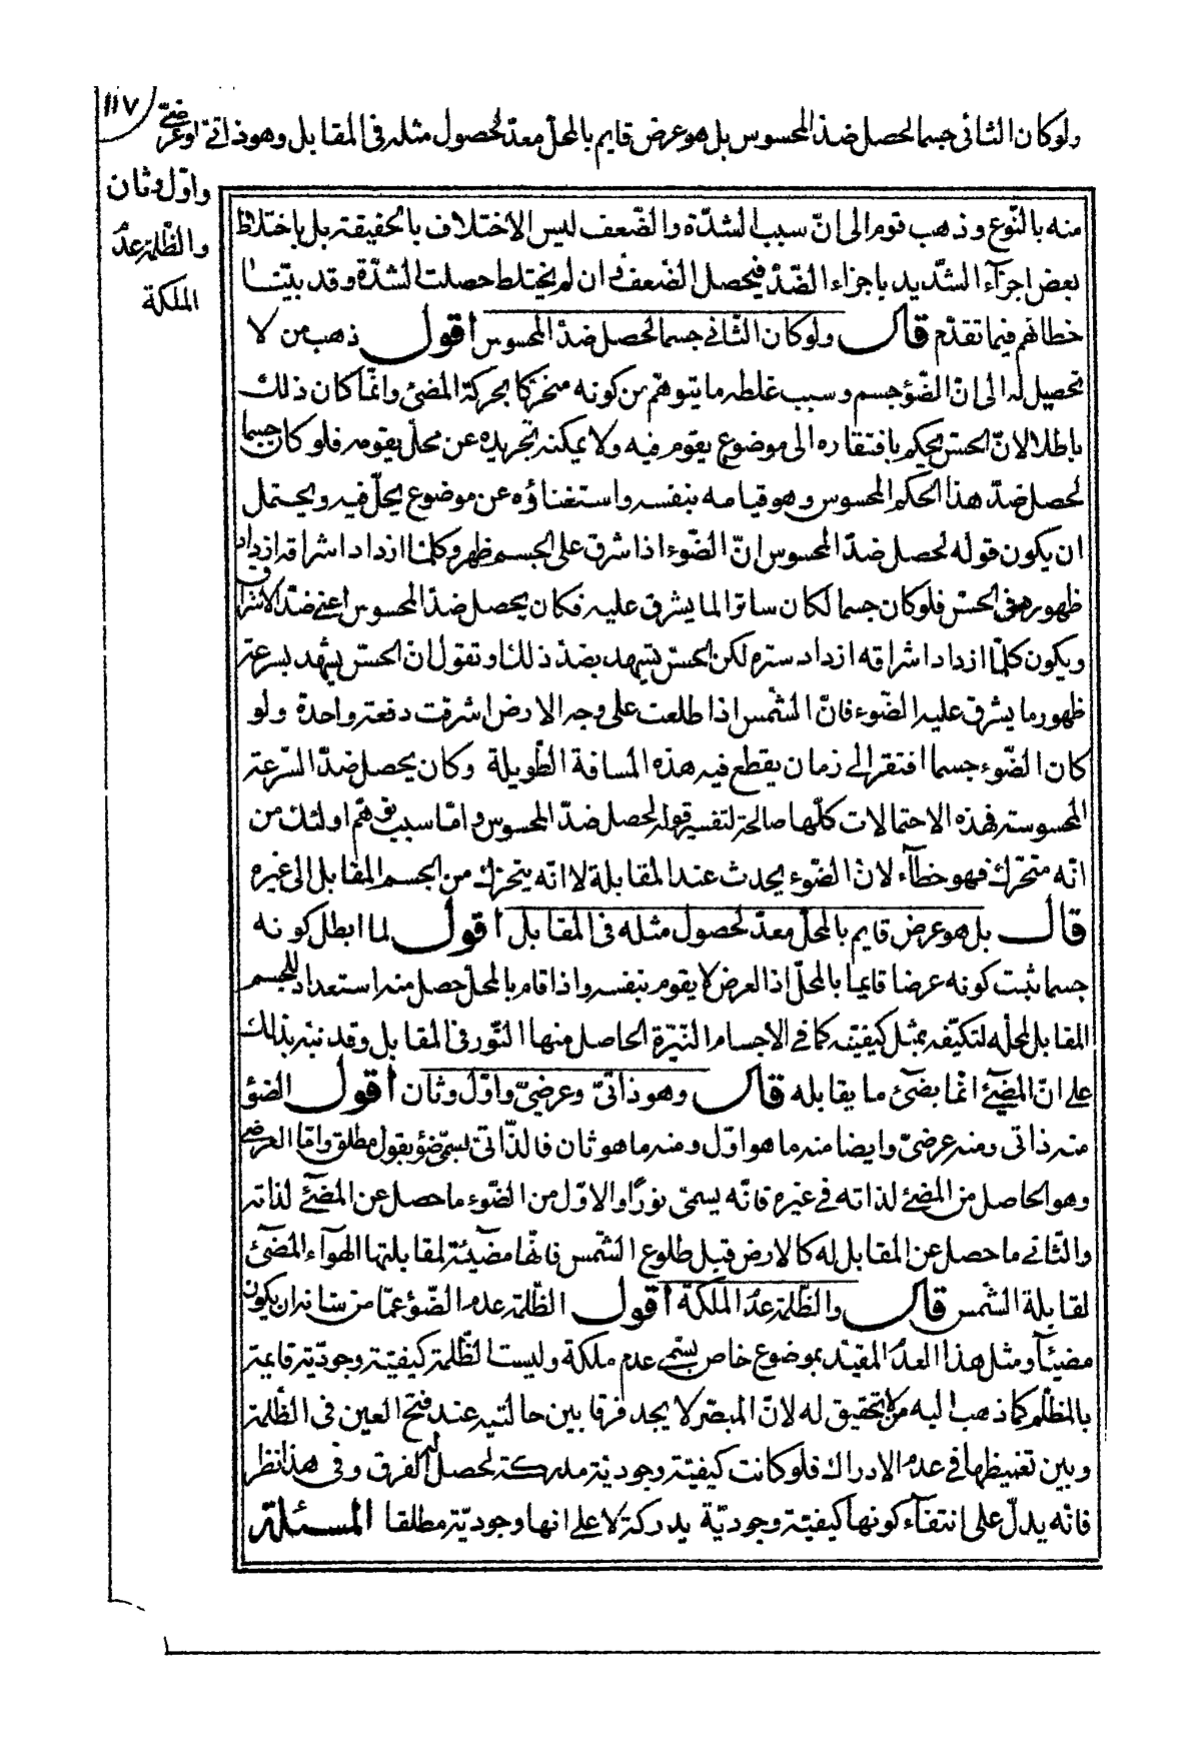 ١١٧
ولو كان الثانى جسما لحصل ضد المحسوس بل هو عرض قايم بالمحل معد لحصول مثله فى المقابل وهو ذاتى وعرضى
واوّل وثان
والظلمة عدم
الملكة
منه بالنّوع وذهب قوم الى انّ سبب الشدّة والضّعف ليس الاختلاف بالحقيقة بل باختلاط
بعض اجزآء الشّديد باجزاء الضّدّ فيحصل الضّعف وان لم يختلط حصلت الشدّة وقد بيّنا
خطائهم فيما تقدّم قال ولو كان الثّانى جسما لحصل ضدّ المحسوس اقول ذهب من لا
تحصيل له الى انّ الضّوء جسم وسبب غلطه ما يتوهّم من كونه متحرّكا بحركة المضئ وانّما كان ذلك
باطلا لانّ الحسّ يحكم بافتقاره الى موضوع يقوم فيه ولا يمكنه تجريده عن محلّ يقومه فلو كان جسما
لحصل ضدّ هذا الحكم المحسوس وهو قيامه بنفسه واستغناؤه عن موضوع يحلّ فيه ويحتمل
ان يكون قوله لحصل ضدّ المحسوس انّ الضّوء اذا اشرق على الجسم ظهر وكلّما ازداد اشراقه ازداد
ظهوره فى الحسّ فلو كان جسما لكان ساترا لما يشرق عليه فكان يحصل ضدّ المحسوس اعنى ضدّ الاشراق
ويكون كلّما ازداد اشراقه ازداد ستره لكن الحسّ يشهد بضدّ ذلك او تقول انّ الحسّ يشهد بسرعة
ظهور ما يشرق عليه الضّوء فانّ الشّمس اذا طلعت على وجه الارض اشرقت دفعة واحدة ولو
كان الضّوء جسما افتقر الى زمان يقطع فيه هذه المسافة الطّويلة وكان يحصل ضدّ السّرعة
المحسوسة فهذه الاحتمالات كلّها صالحة لتفسير قوله لحصل ضدّ المحسوس وامّا سبب توهّم اولئك من
انّه متحّرك فهو خطآء لانّ الضّوء يحدث عند المقابلة لا انّه يتحرّك من الجسم المقابل الى غيره
قال بل هو عرض قايم بالمحلّ معدّ لحصول مثله فى المقابل اقول لما ابطل كونه
جسما ثبت كونه عرضا قايما بالمحلّ اذ العرض لا يقوم بنفسه واذا قام بالمحلّ حصل منه استعداد للجسم
المقابل لمحلّه لتكيّفه بمثل كيفيّته كما فى الاجسام النّيّرة الحاصل منها النّور فى المقابل وقد نبّه بذلك
على انّ المضئ انّما يضئ ما يقابله قال وهو ذاتىّ وعرضىّ واوّل وثان اقول الضوء
منه ذاتى ومنه عرضىّ وايضا منه ما هو اوّل ومنه ما هو ثان فالذّاتى يسمّى ضوء بقول مطلق وامّا العرضى
وهو الحاصل من المضئ لذاته فى غيره فانّه يسمّى نورًا والاوّل من الضّوء ما حصل عن المضئ لذاته
والثّانى ما حصل عن المقابل له كالارض قبل طلوع الشّمس فانّها مضيئة لمقابلتها الهوآء المضئ
لمقابلة الشّمس قال والظّلمة عدم الملكة اقول الظّلمة عدم الضّوء عمّا من شانه ان يكون
مضيئآ ومثل هذا العدم المقيّد بموضوع خاص يسمّى عدم ملكة وليست الظّلمة كيفيّة وجوديّة قايمة
بالمظلم كما ذهب اليه من لا تحقيق له لانّ المبصر لا يجد فرقا بين حالتيه عند فتح العين فى الظّلمة
وبين تغميضها فى عدم الادراك فلو كانت كيفيّة وجوديّة مدركة لحصل الفرق وفى هذا نظر
فانّه يدلّ على انتفآء كونها كيفيّة وجوديّة يدركة لا على انها وجوديّة مطلقا المسئلة